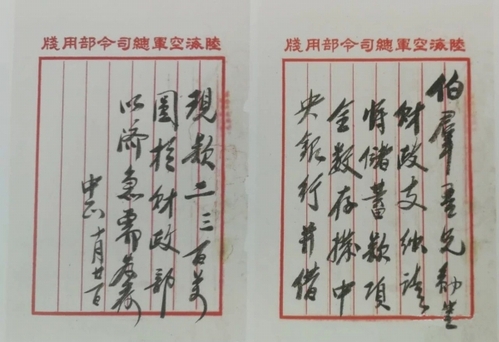 陸海空軍總司令部用牋
伯羣吾兄勛鑒
財政支絀請
將儲蓄款項
全數存撥中
央銀行并借
陸海空軍總司令部用牋
現款二三百萬
圓於財政部
以濟急需為荷
中正 十月廿一日